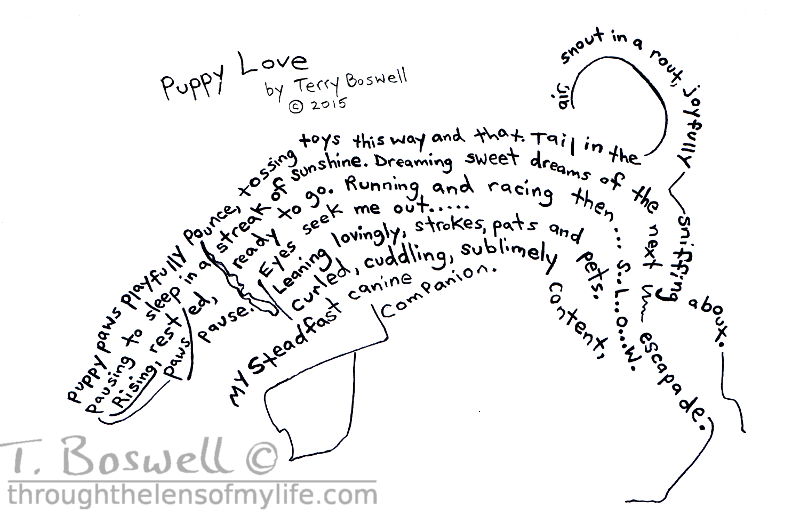 Puppy Love
by Terry Boswell
© 2015
Puppy paws playfully pounce, tossing toys this way and that. Tail in the
jib.
snout in a rout, joyfully sniffing about.
Pausing to sleep in a streak of sunshine. Dreaming sweet dreams of the next escapade.
Rising, rested, ready to go. Running and racing then... S..L..O...W.
paws pause. Eyes seek me out.....
Leaning lovingly, strokes, pats and pets.
curled, cuddling, sublimely content,
My Steadfast canine companion.
T. Boswell ©
throughthelensofmylife.com